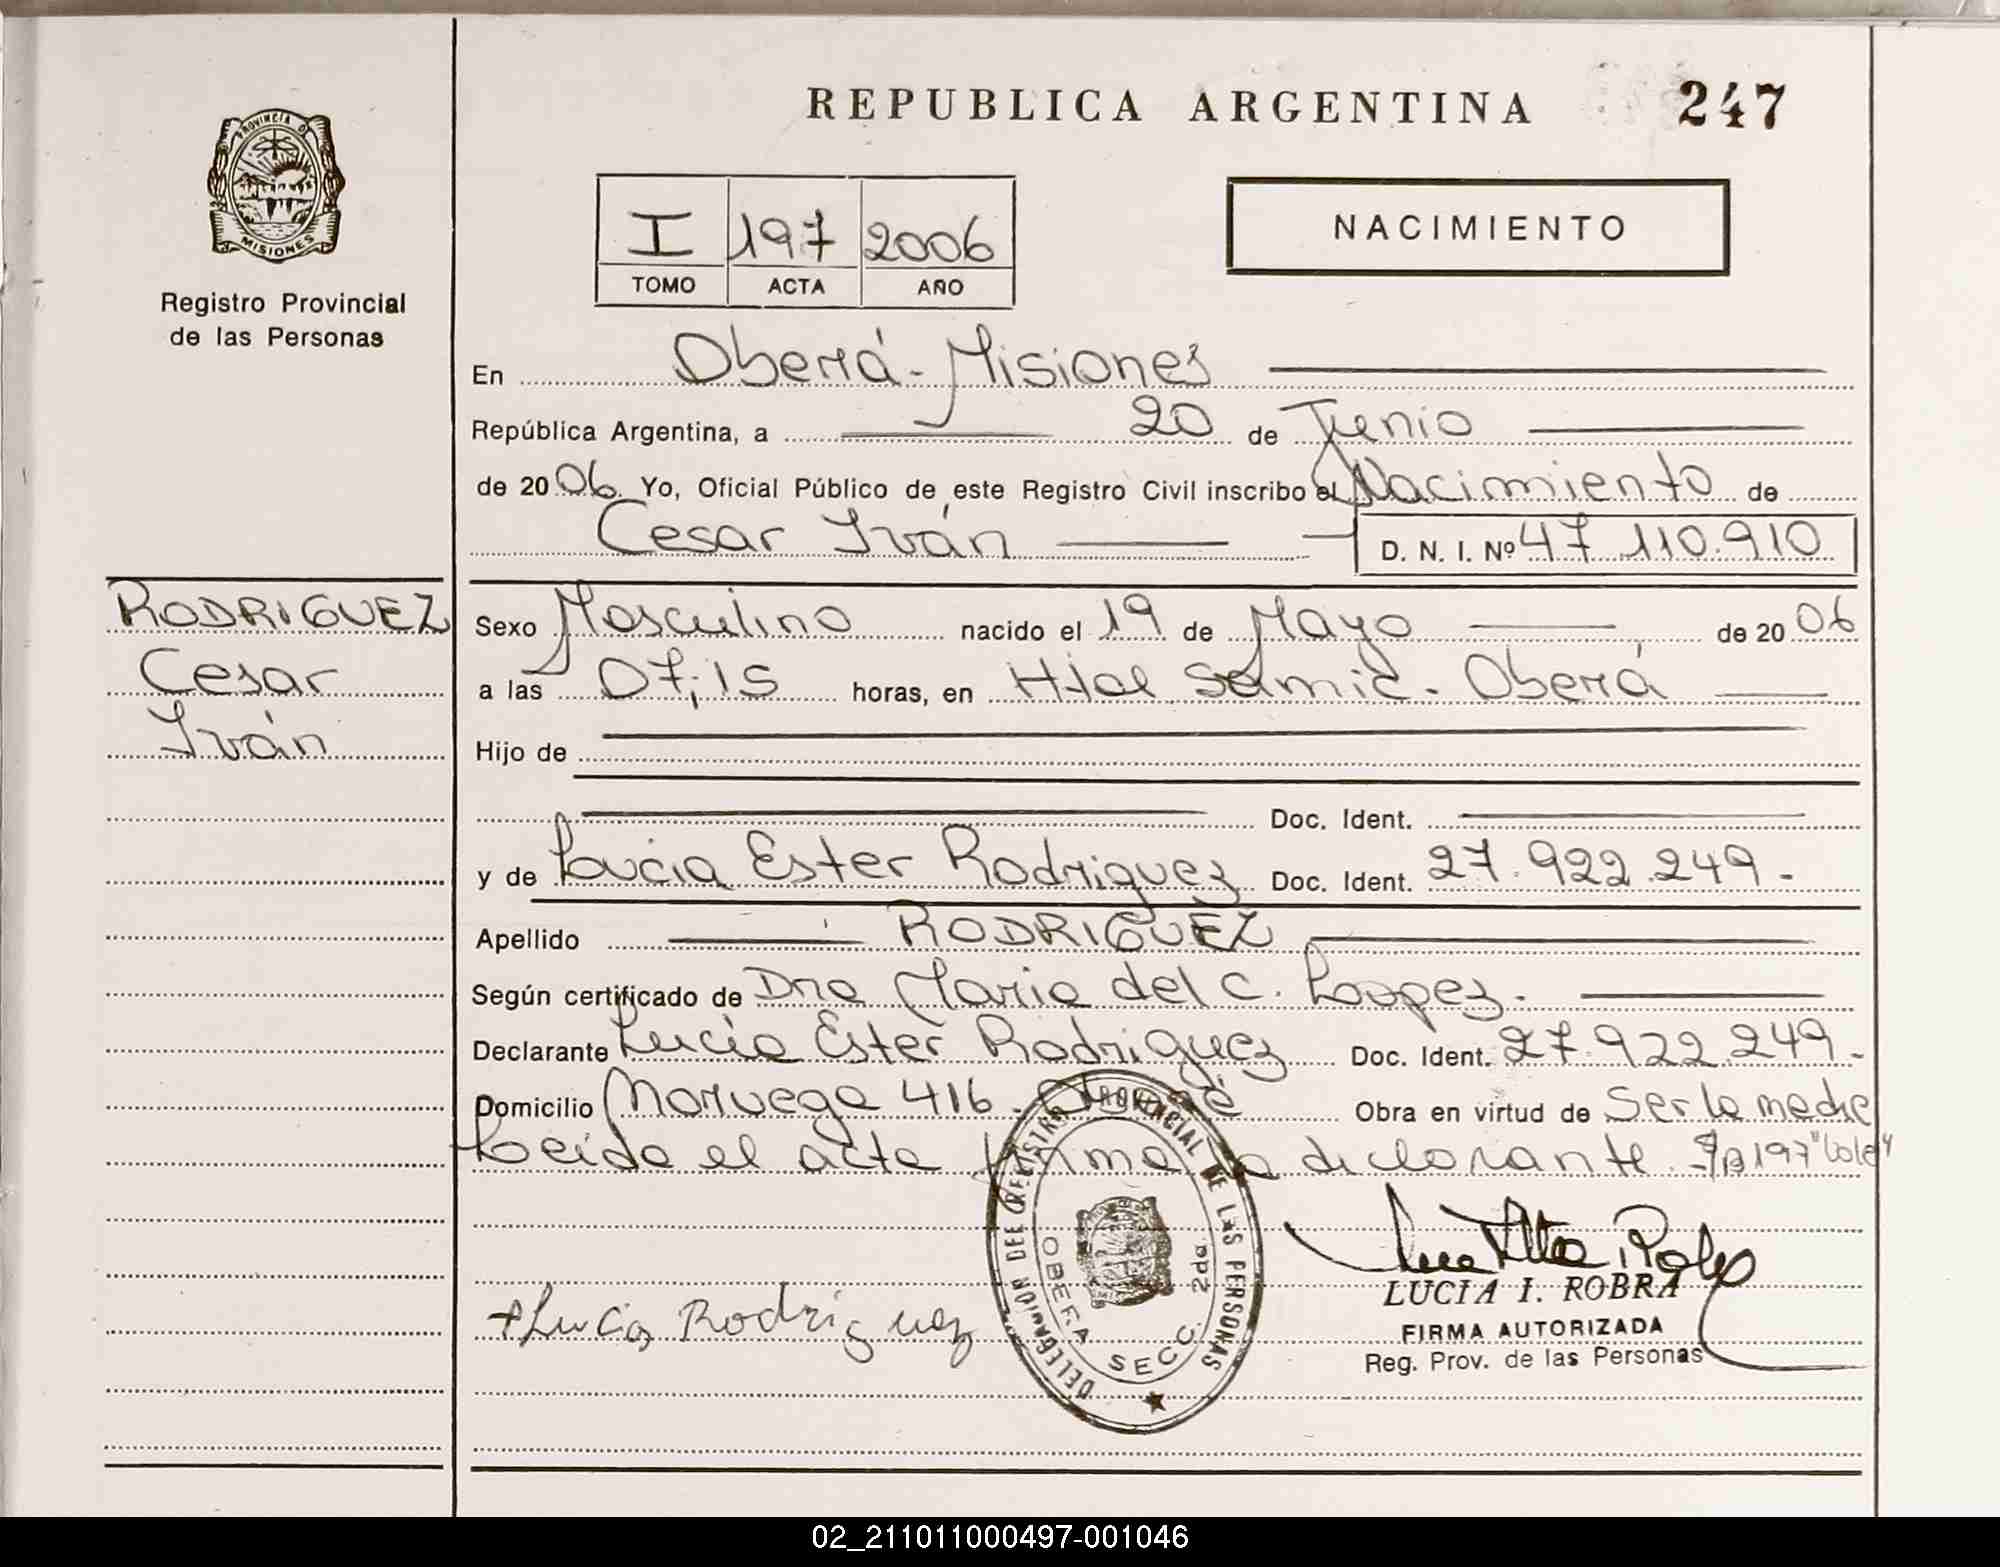 REPUBLICA ARGENTINA
247
PROVINCIA DE
MISIONES
Registro Provincial
de las Personas
I 197 2006
TOMO ACTA AÑO
NACIMIENTO
En Oberá - Misiones
República Argentina, a 20 de Junio
de 2006 Yo, Oficial Público de este Registro Civil inscribo el Nacimiento de
Cesar Iván D. N. I. Nº 47.110.910
RODRIGUEZ
Cesar
Iván
Sexo Masculino nacido el 19 de Mayo de 2006
a las 07,15 horas, en Htal Samic. Oberá
Hijo de
Doc. Ident.
y de Lucia Ester Rodriguez Doc. Ident. 27.922.249.-
Apellido RODRIGUEZ
Según certificado de Dra Maria del C. Lopez.
Declarante Lucia Ester Rodriguez Doc. Ident. 27.922.249.-
Domicilio Noruega 416. Oberá Obra en virtud de Ser la madre
Leida el acta firma la declarante. 197
DELEGACION DEL REGISTRO PROVINCIAL DE LAS PERSONAS
OBERA SECC. 2da.
Lucia Rodriguez
LUCIA I. ROBRA
FIRMA AUTORIZADA
Reg. Prov. de las Personas
02_211011000497-001046